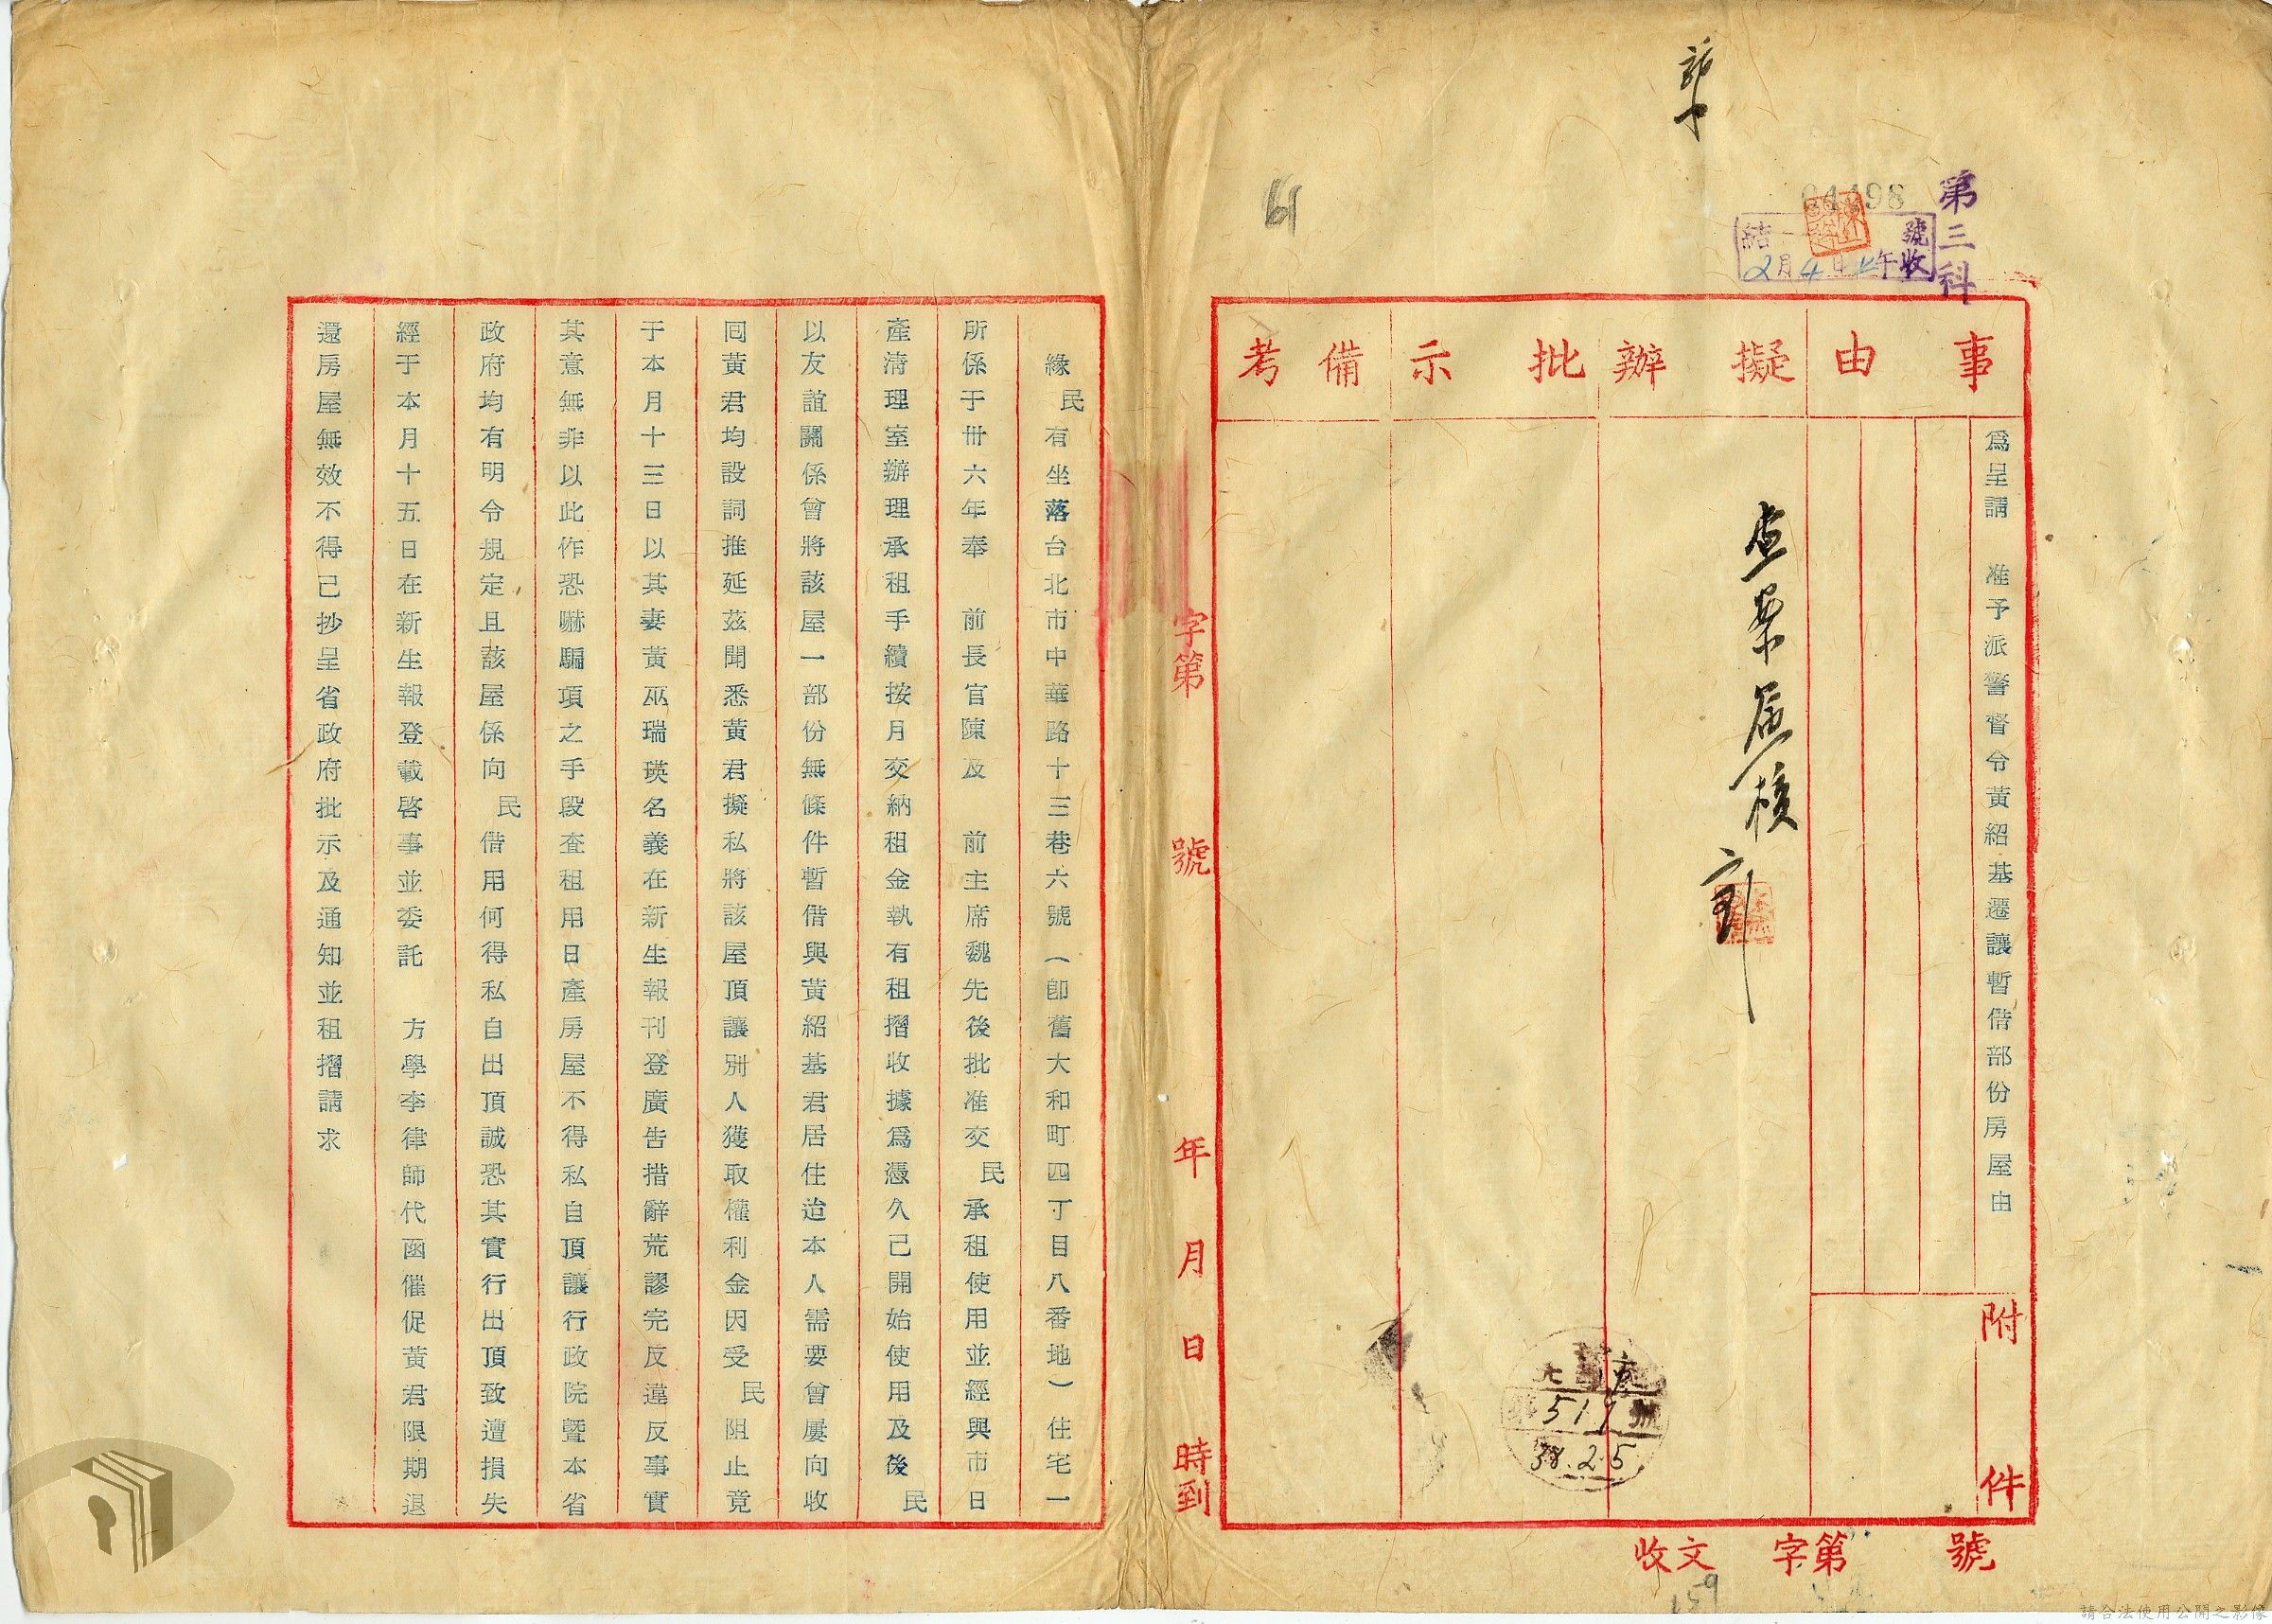 第三科
04498
號收
結
2月4日上午
61
事由
擬辦
批示
備考
為呈請　准予派警督令黃紹基遷讓暫借部份房屋由
附件
查案屆核
字第　號
年　月　日　時到
517
38.2.5
收文　字第　號
159
緣民有坐落台北市中華路十三巷六號（卽舊大和町四丁目八番地）住宅一
所係于卅六年奉　前長官陳及　前主席魏先後批准交民承租使用並經與市日
產清理室辦理承租手續按月交納租金執有租摺收據為憑久已開始使用及後民
以友誼關係曾將該屋一部份無條件暫借與黃紹基君居住迨本人需要曾屢向收
囘黃君均設詞推延茲聞悉黃君擬私將該屋頂讓別人獲取權利金因受民阻止竟
于本月十三日以其妻黃巫瑞瑛名義在新生報刊登廣告措辭荒謬完反違反事實
其意無非以此作恐嚇騙項之手段查租用日產房屋不得私自頂讓行政院暨本省
政府均有明令規定且該屋係向民借用何得私自出頂誠恐其實行出頂致遭損失
經于本月十五日在新生報登載啓事並委託　方學李律師代函催促黃君限期退
還房屋無效不得已抄呈省政府批示及通知並租摺請求
請合法使用公開之影像